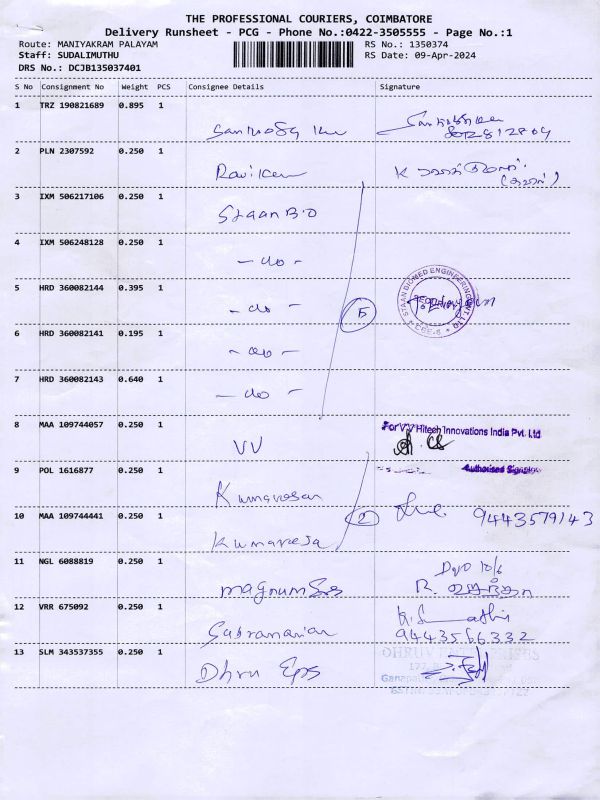 THE PROFESSIONAL COURIERS, COIMBATORE
Delivery Runsheet - PCG - Phone No.:0422-3505555 - Page No.:1
Route: MANIYAKRAM PALAYAM RS No.: 1350374
Staff: SUDALIMUTHU RS Date: 09-Apr-2024
DRS No.: DCJB135037401
S No Consignment No Weight PCS Consignee Details Signature
1 TRZ 190821689 0.895 1
2 PLN 2307592 0.250 1 Ravi K
3 IXM 506217106 0.250 1 Staan B.O
4 IXM 506248128 0.250 1 - do -
5 HRD 360082144 0.395 1 - do - 5 STAAN BIOMED ENGINEERING PVT LTD CBE-6
6 HRD 360082141 0.195 1 - do -
7 HRD 360082143 0.640 1 - do -
8 MAA 109744057 0.250 1 VV For VV Hitech Innovations India Pvt. Ltd
Authorised
9 POL 1616877 0.250 1 Kumaresan
10 MAA 109744441 0.250 1 Kumaresa 2 9443579143
11 NGL 6088819 0.250 1 magnum R.
12 VRR 675092 0.250 1 Subramanian 9443566332
13 SLM 343537355 0.250 1 Dhru Eps DHRUV ENTERPRISES